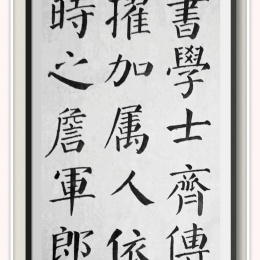 書學士齊傳
擢加属人依
時之詹軍郎